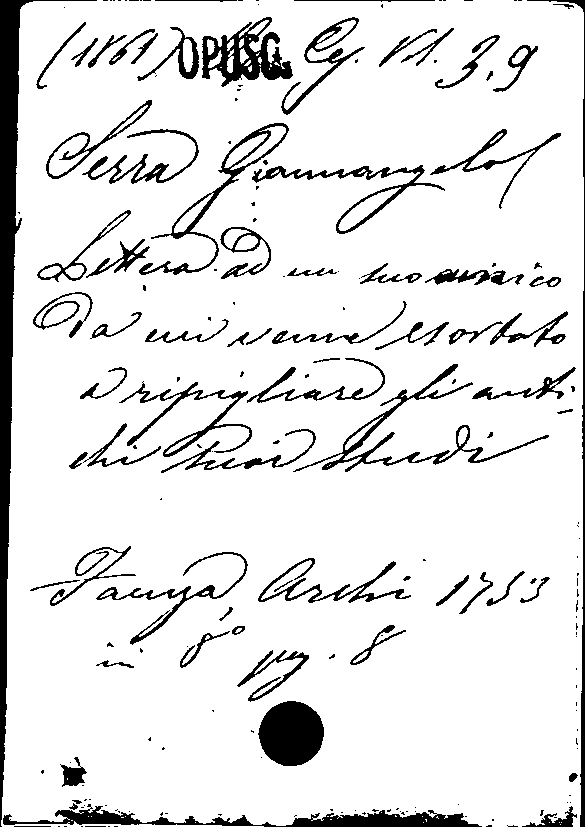 (1861) OPUSC. Cg. VI. 3.9
Serra Giannangelo
Lettera ad un suo amico
Da cui venne esortato
a ripigliare gli anti-
chi suoi studi
Faenza, Archi 1753
in 8° pag. 8